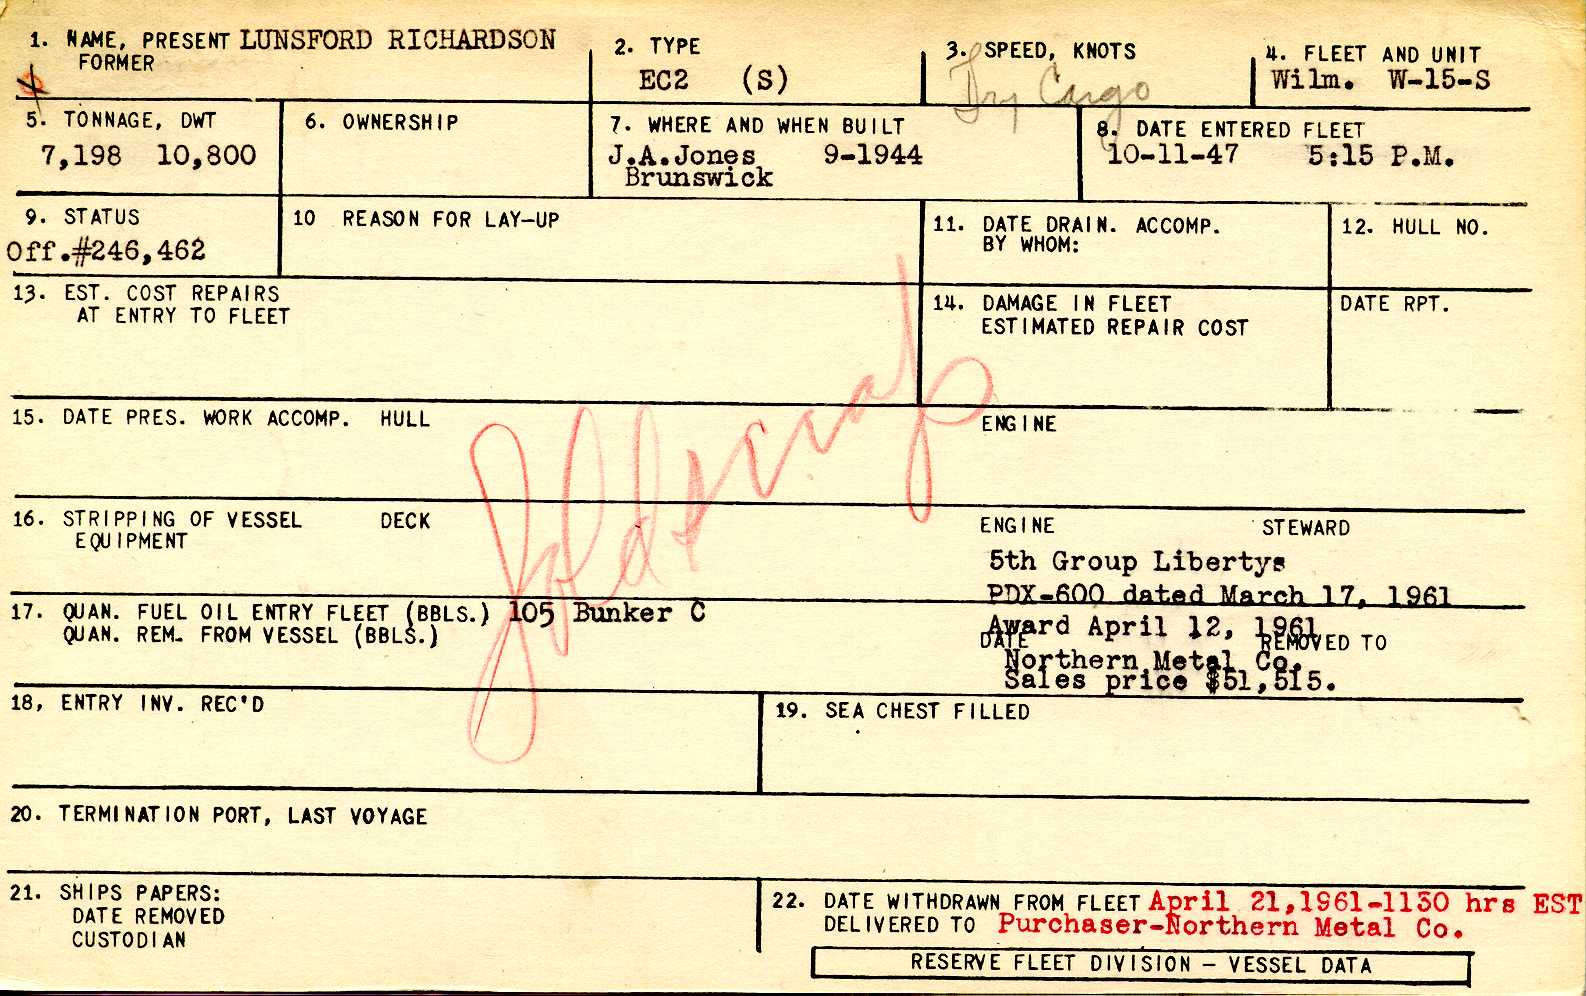 1. NAME, PRESENT LUNSFORD RICHARDSON
FORMER
2. TYPE
EC2 (S)
3. SPEED, KNOTS
Dry Cargo
4. FLEET AND UNIT
Wilm. W-15-S
5. TONNAGE, DWT
7,198 10,800
6. OWNERSHIP
7. WHERE AND WHEN BUILT
J.A.Jones 9-1944
Brunswick
8. DATE ENTERED FLEET
10-11-47 5:15 P.M.
9. STATUS
Off.#246,462
10 REASON FOR LAY-UP
11. DATE DRAIN. ACCOMP.
BY WHOM:
12. HULL NO.
13. EST. COST REPAIRS
AT ENTRY TO FLEET
14. DAMAGE IN FLEET
ESTIMATED REPAIR COST
DATE RPT.
Sold scrap
15. DATE PRES. WORK ACCOMP. HULL
ENGINE
16. STRIPPING OF VESSEL DECK
EQUIPMENT
ENGINE STEWARD
5th Group Libertys
PDX-600 dated March 17, 1961
17. QUAN. FUEL OIL ENTRY FLEET (BBLS.) 105 Bunker C
QUAN. REM. FROM VESSEL (BBLS.)
Award April 12, 1961
DATE REMOVED TO
Northern Metal Co.
Sales price $51,515.
18, ENTRY INV. REC'D
19. SEA CHEST FILLED
20. TERMINATION PORT, LAST VOYAGE
21. SHIPS PAPERS:
DATE REMOVED
CUSTODIAN
22. DATE WITHDRAWN FROM FLEET April 21,1961-1130 hrs EST
DELIVERED TO Purchaser-Northern Metal Co.
RESERVE FLEET DIVISION - VESSEL DATA